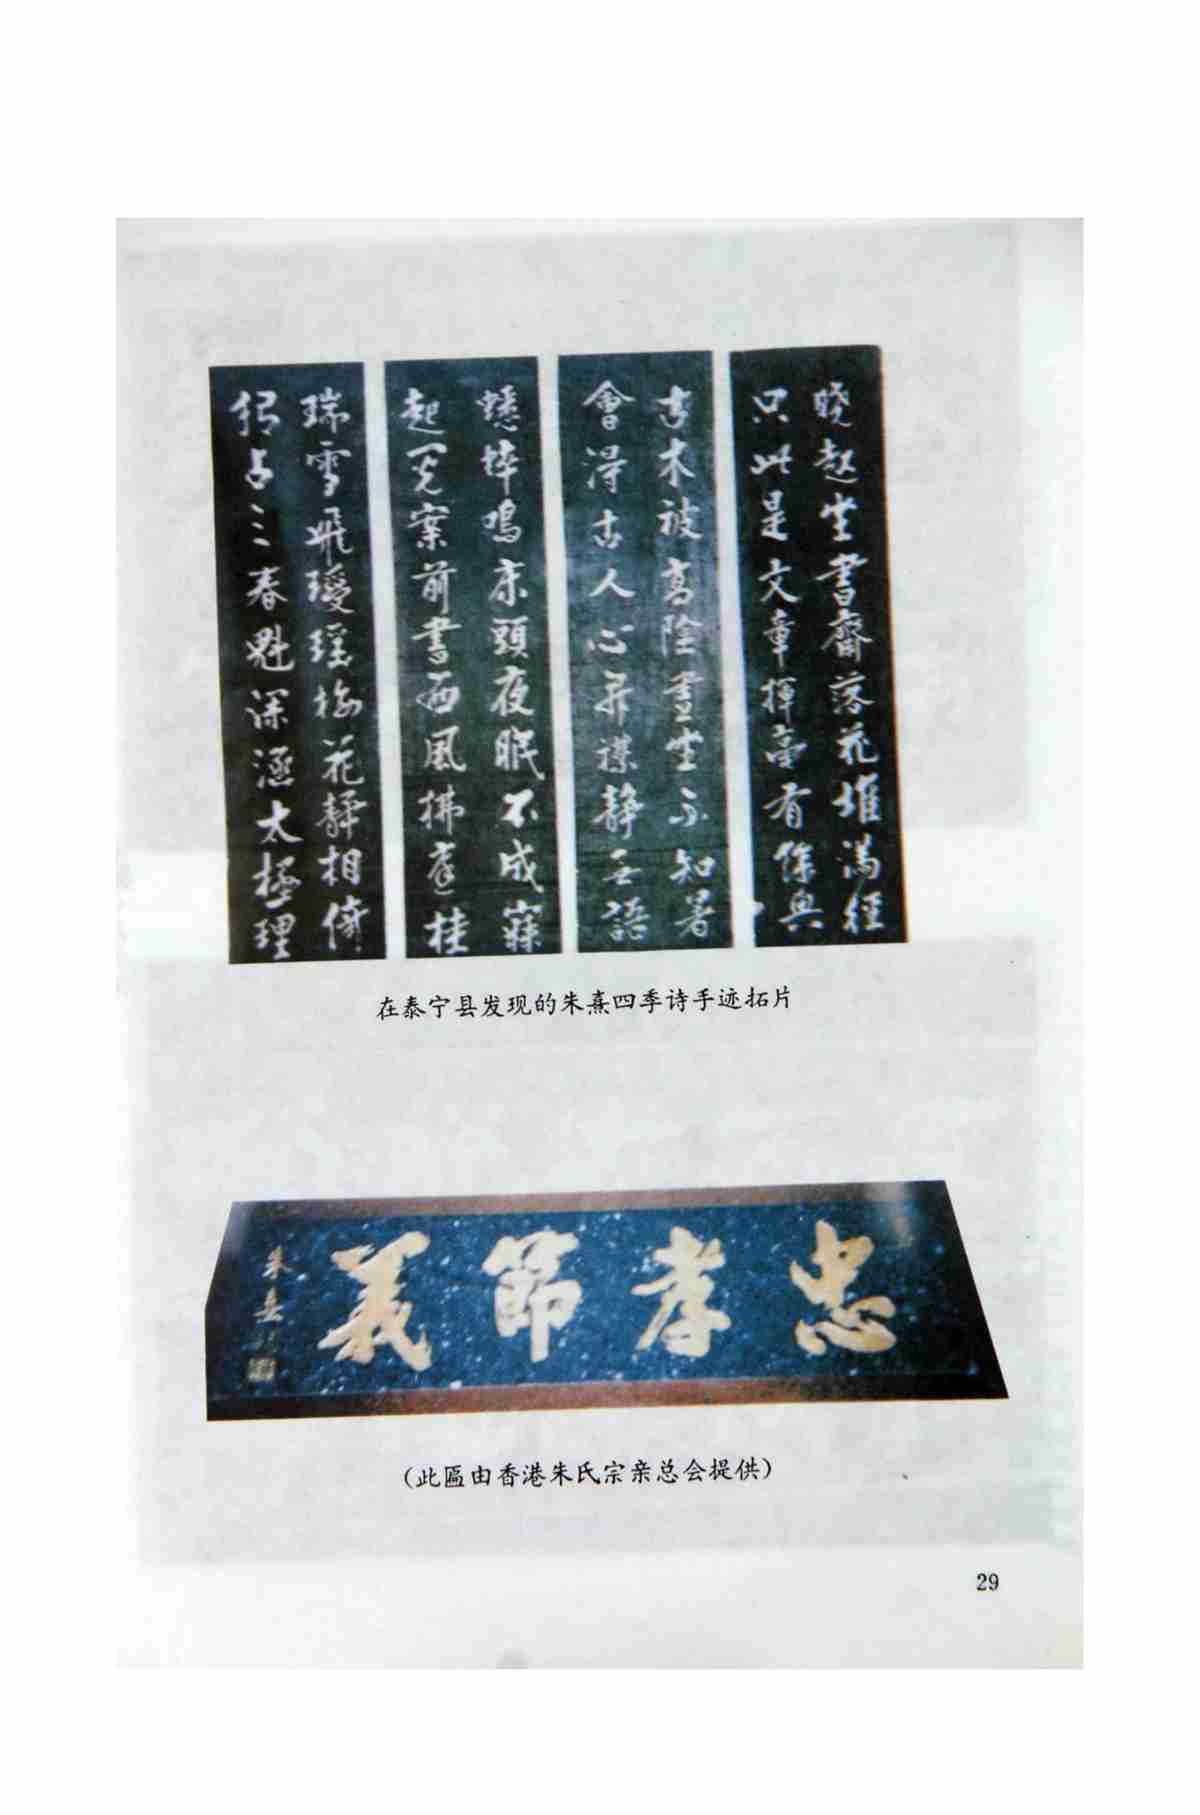 晓起坐書齋落花堆滿徑
只此是文章揮毫有餘興
古木被高陰晝坐不知暑
會得古人心開襟靜無語
蟋蟀鳴床頭夜眠不成寐
起閲案前書西風拂庭桂
瑞雪飛瓊瑶梅花靜相倚
獨占三春魁深涵太極理
在泰宁县发现的朱熹四季诗手迹拓片
忠孝節義
朱熹
（此匾由香港朱氏宗亲总会提供）
29